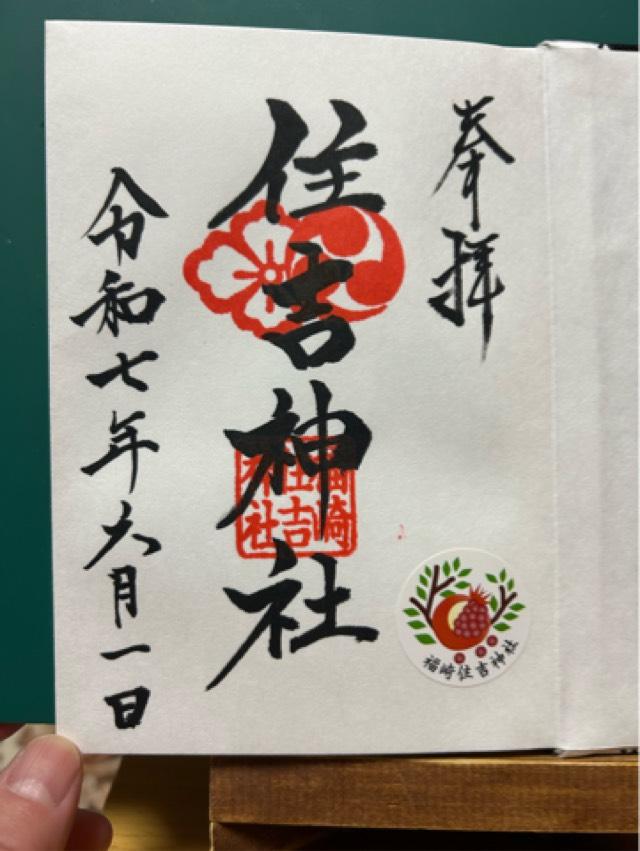 奉拝
住吉神社
福崎
住吉
神社
令和七年六月一日
福崎住吉神社